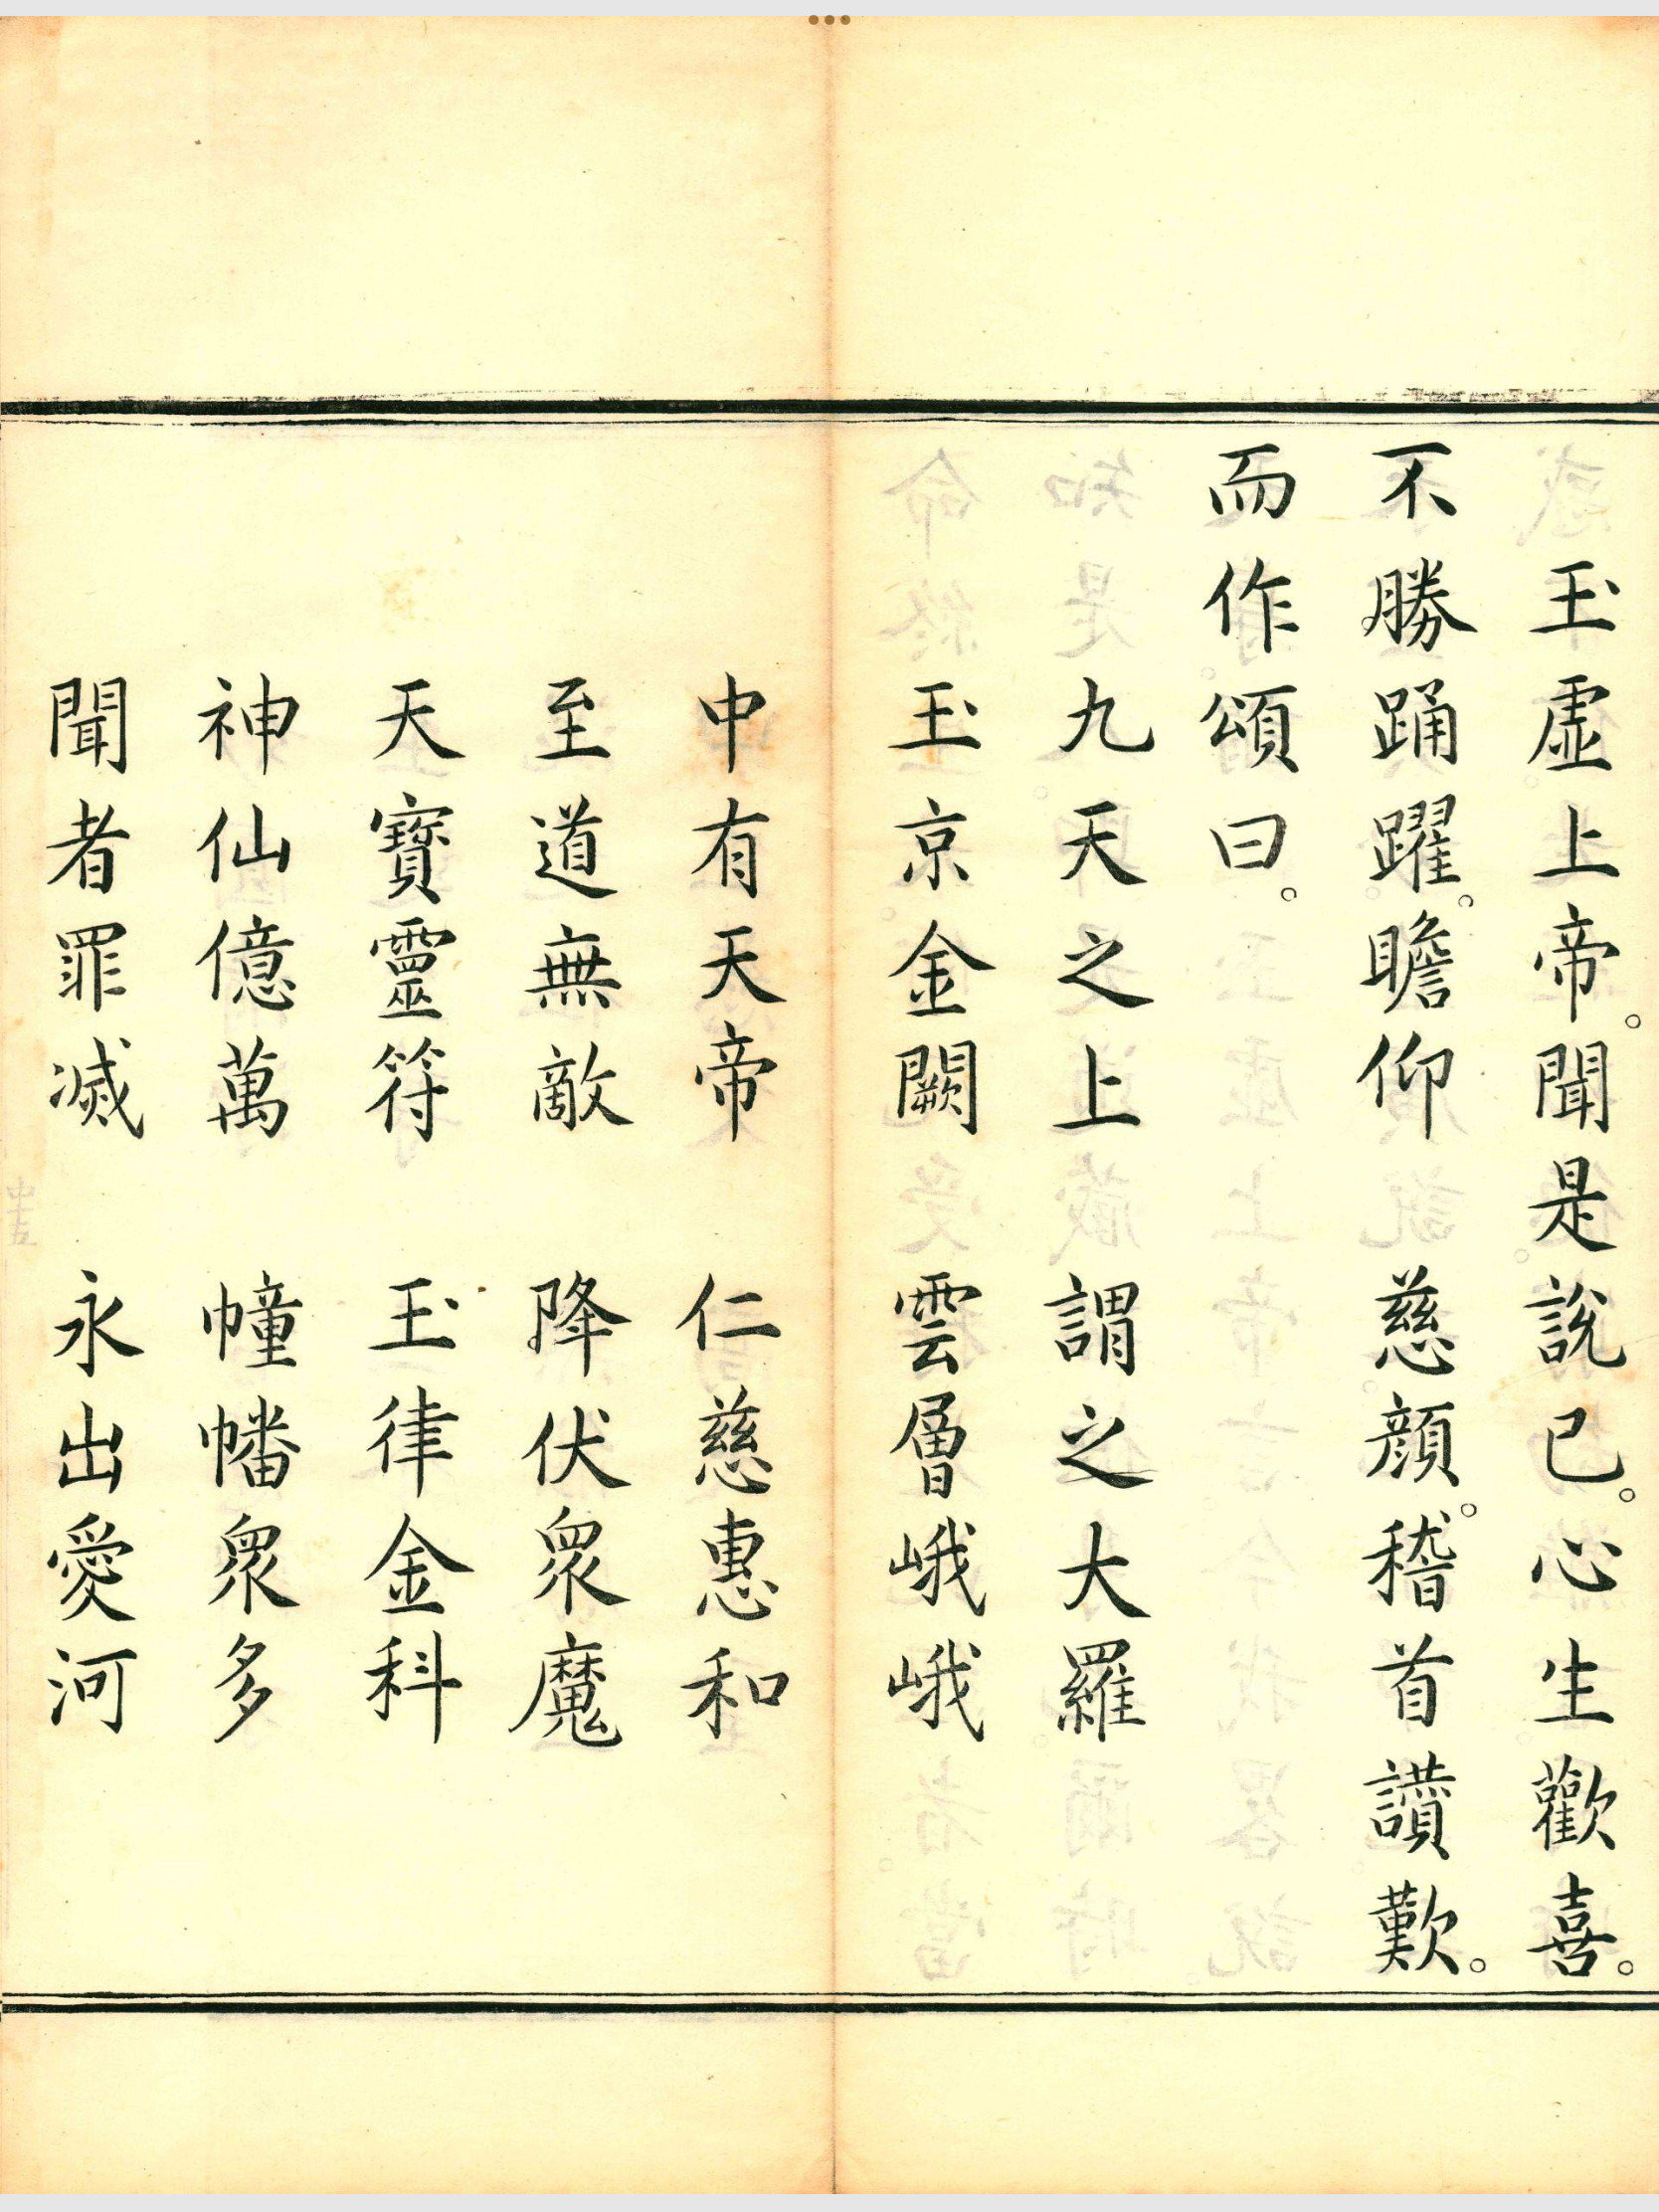 玉虛上帝。聞是說已。心生歡喜。
不勝踊躍。瞻仰 慈顔。稽首讚歎。
而作頌曰。
九天之上 謂之大羅
玉京金闕 雲層峨峨
中有天帝 仁慈惠和
至道無敵 降伏眾魔
天寶靈符 玉律金科
神仙億萬 幢幡眾多
聞者罪滅 永出愛河